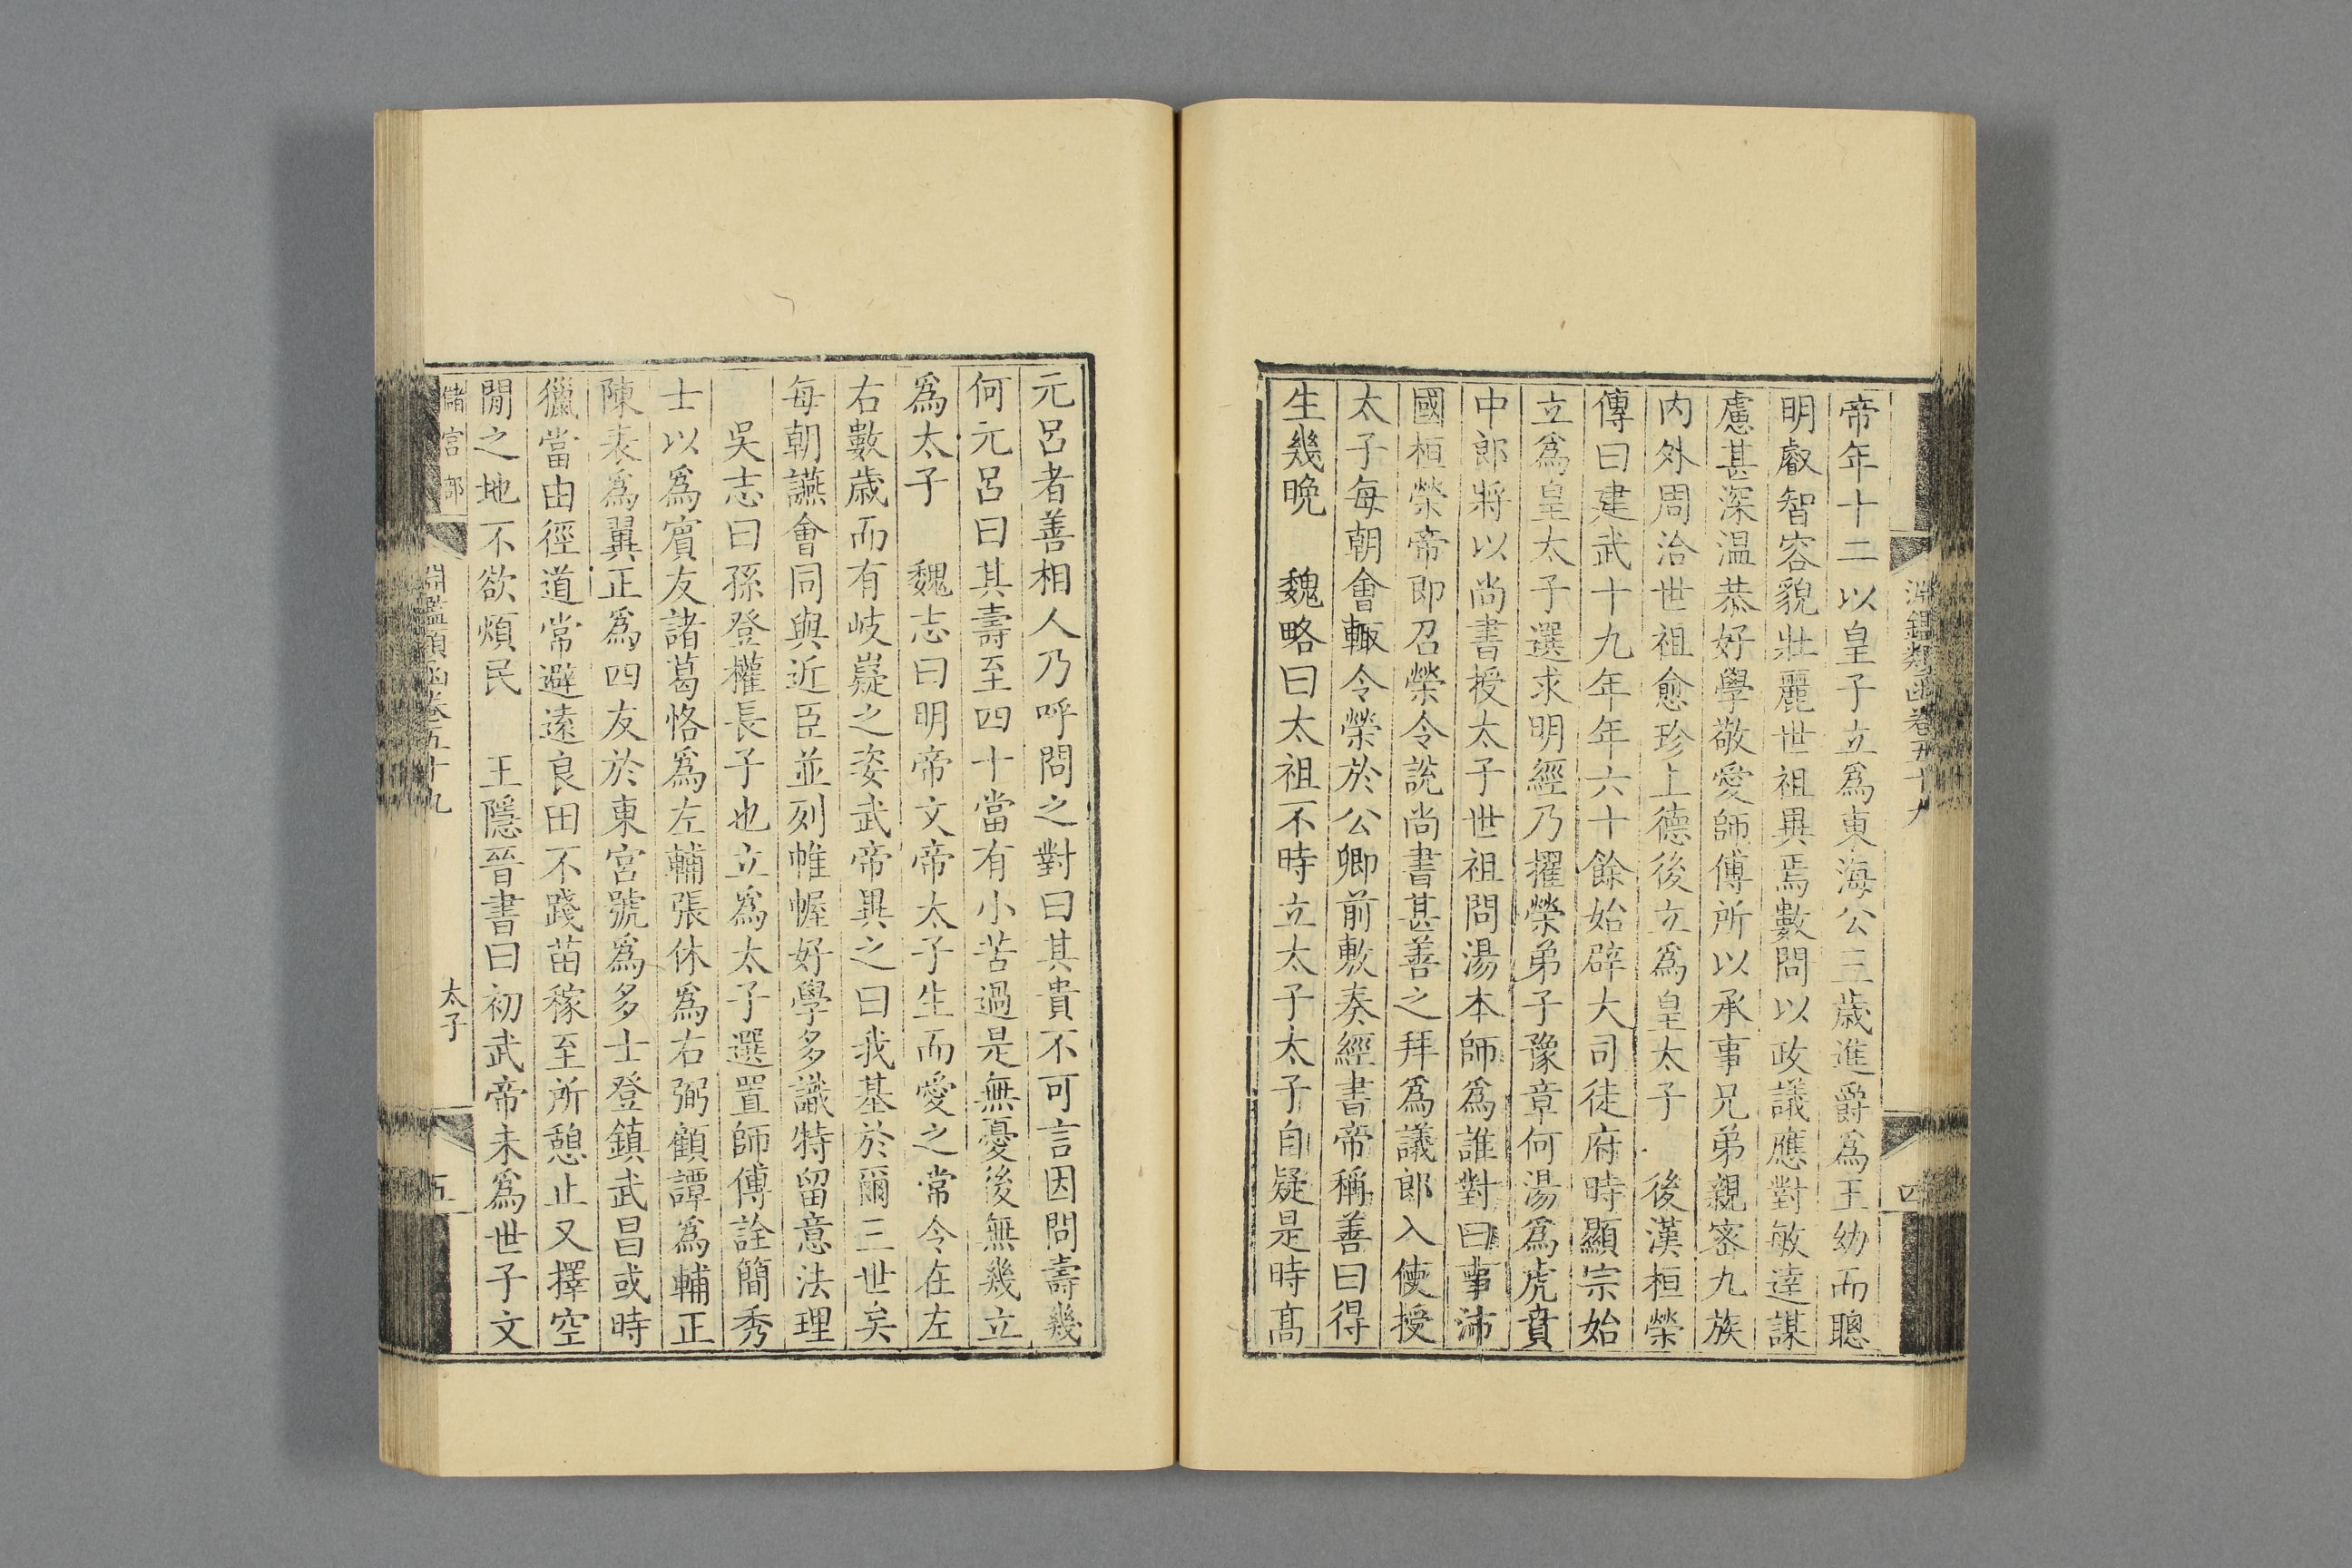 淵鑑類函卷五十九
四
帝年十二以皇子立爲東海公三歲進爵爲王幼而聰
明叡智容貌壯麗世祖異焉數問以政議應對敏達謀
慮甚深溫恭好學敬愛師傅所以承事兄弟親密九族
内外周洽世祖愈珍上德後立爲皇太子　後漢桓榮
傳曰建武十九年年六十餘始辟大司徒府時顯宗始
立爲皇太子選求明經乃擢榮弟子豫章何湯爲虎賁
中郎將以尚書授太子世祖問湯本師爲誰對曰事沛
國桓榮帝即召榮令説尚書甚善之拜爲議郎入使授
太子每朝會輙令榮於公卿前敷奏經書帝稱善曰得
生幾晩　魏略曰太祖不時立太子太子自疑是時髙
元呂者善相人乃呼問之對曰其貴不可言因問壽幾
何元呂曰其壽至四十當有小苦過是無憂後無幾立
爲太子　魏志曰明帝文帝太子生而愛之常令在左
右數歲而有岐嶷之姿武帝異之曰我基於爾三世矣
每朝讌會同與近臣並列帷幄好學多識特留意法理
吳志曰孫登權長子也立爲太子選置師傅詮簡秀
士以爲賓友諸葛恪爲左輔張休爲右弼顧譚爲輔正
陳表爲翼正爲四友於東宮號爲多士登鎮武昌或時
獵當由徑道常避遠良田不踐苗稼至所憩止又擇空
閒之地不欲煩民　王隱晉書曰初武帝未爲世子文
儲宮部
淵鑑類函卷五十九
太子
五